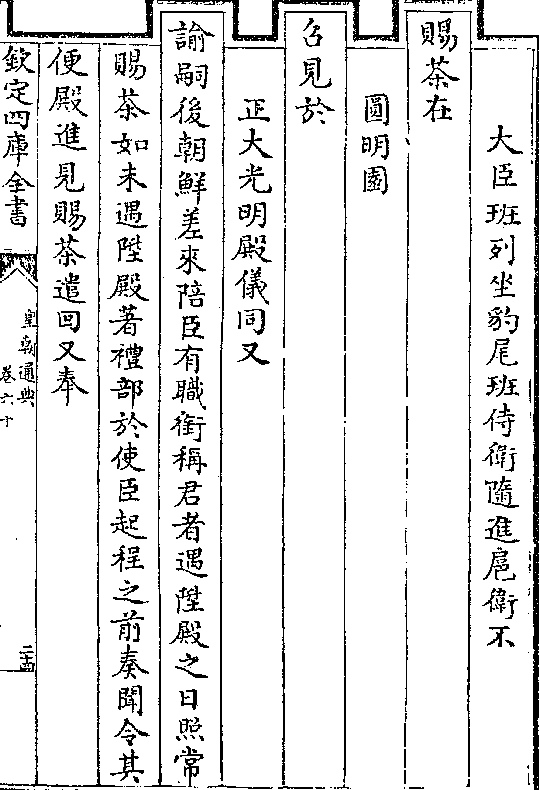 大臣班列坐豹尾班侍衛隨進扈衛不
賜茶在
圓明園
召見於
正大光明殿儀同又
諭嗣後朝鮮差來陪臣有職銜稱君者遇陞殿之日照常
賜茶如未遇陞殿著禮部於使臣起程之前奏聞令其
便殿進見賜茶遣回又奉
欽定四庫全書
皇朝通典
卷六十
二十四